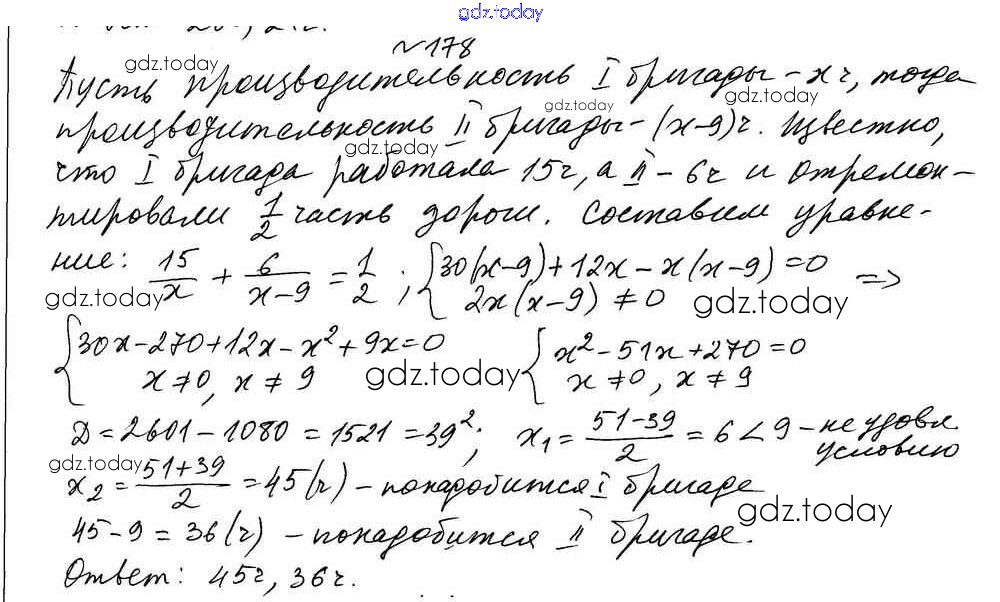 gdz.today
№178
Пусть производительность I бригады - x ч, тогда
производительность II бригады - (x-9) ч. Известно,
что I бригада работала 15 ч, а II - 6 ч и отремон-
тировали 1/2 часть дороги. Составим уравне-
ние: 15/x + 6/(x-9) = 1/2 ; { 30(x-9)+12x-x(x-9)=0 =>
2x(x-9) ≠ 0
{ 30x-270+12x-x²+9x=0 { x²-51x+270=0
x≠0, x≠9 x≠0, x≠9
Д=2601-1080=1521=39²; x₁=(51-39)/2=6<9 - не удовл.
условию
x₂=(51+39)/2=45(ч) - понадобится I бригаде
45-9=36(ч) - понадобится II бригаде.
Ответ: 45ч, 36ч.
gdz.today
gdz.today
gdz.today
gdz.today
gdz.today
gdz.today
gdz.today
gdz.today
gdz.today